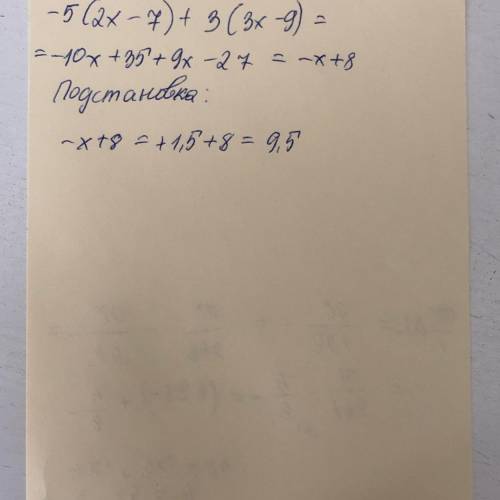 -5(2x-7)+3(3x-9)=
=-10x+35+9x-27=-x+8
Подстановка:
-x+8=+1,5+8=9,5